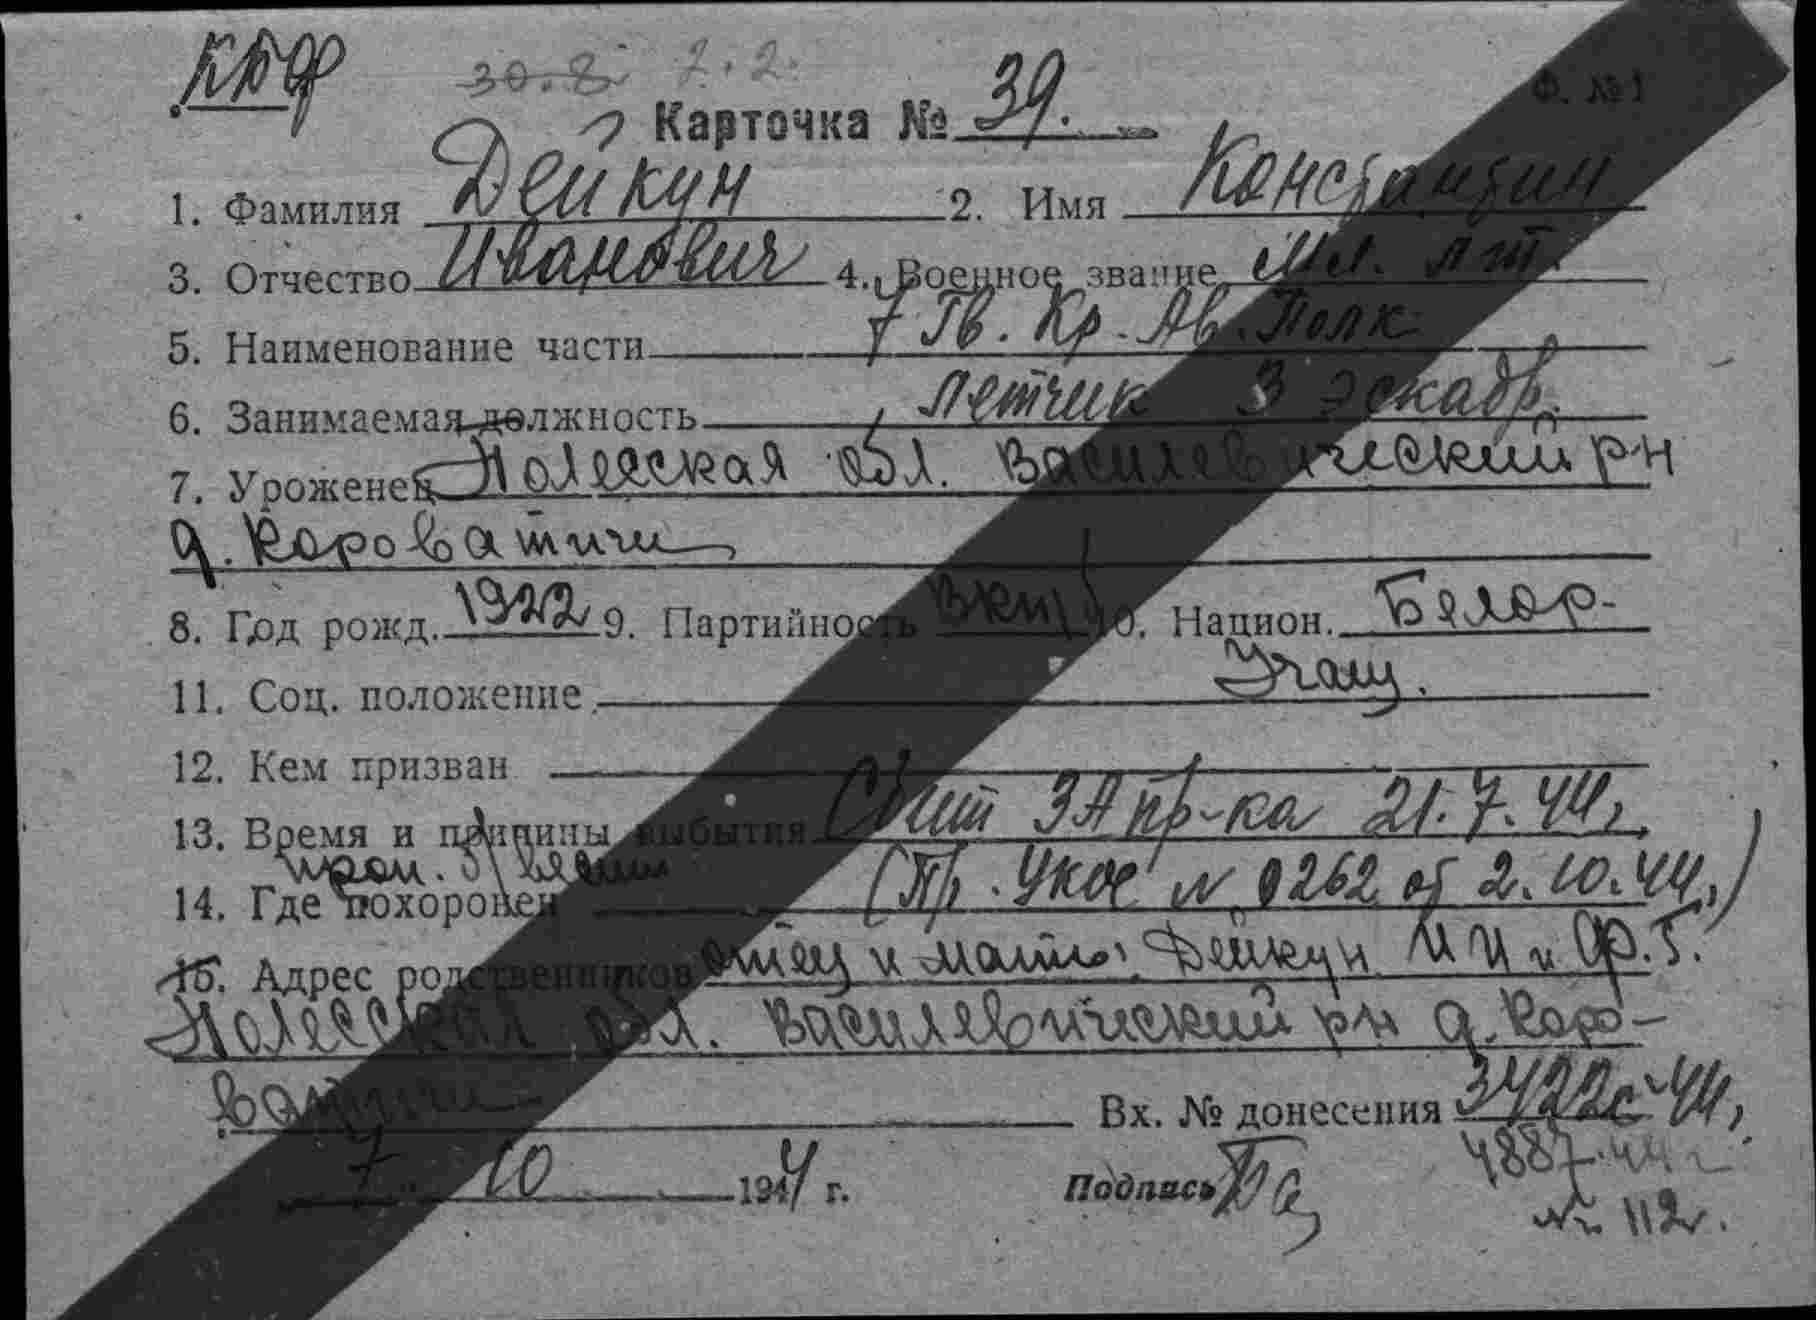 КБФ 30.8 2.2.
Ф. №1
Карточка № 39.
1. Фамилия Дейкун 2. Имя Константин
3. Отчество Иванович 4. Военное звание Мл. лт.
5. Наименование части 7 Гв. Кр. Ав. Полк
6. Занимаемая должность летчик 3 эскадр.
7. Уроженец Полесская обл. Василевический рн
д. Короватичи
8. Год рожд. 1922 9. Партийность ВКП/б 10. Национ. Белор-
11. Соц. положение Учащ.
12. Кем призван
13. Время и причины выбытия Сбит ЗА пр-ка 21.7.44г.
проп. б/вести
14. Где похоронен (Пр. УКОС № 0262 от 2.10.44г.)
15. Адрес родственников отец и мать: Дейкун И И и Ф.Г.
Полесская обл. Василевический рн д. Коро-
ватичи
Вх. № донесения 3422с-44г.
7. 10 1944 г. Подпись
4887-44г
№ 112г.